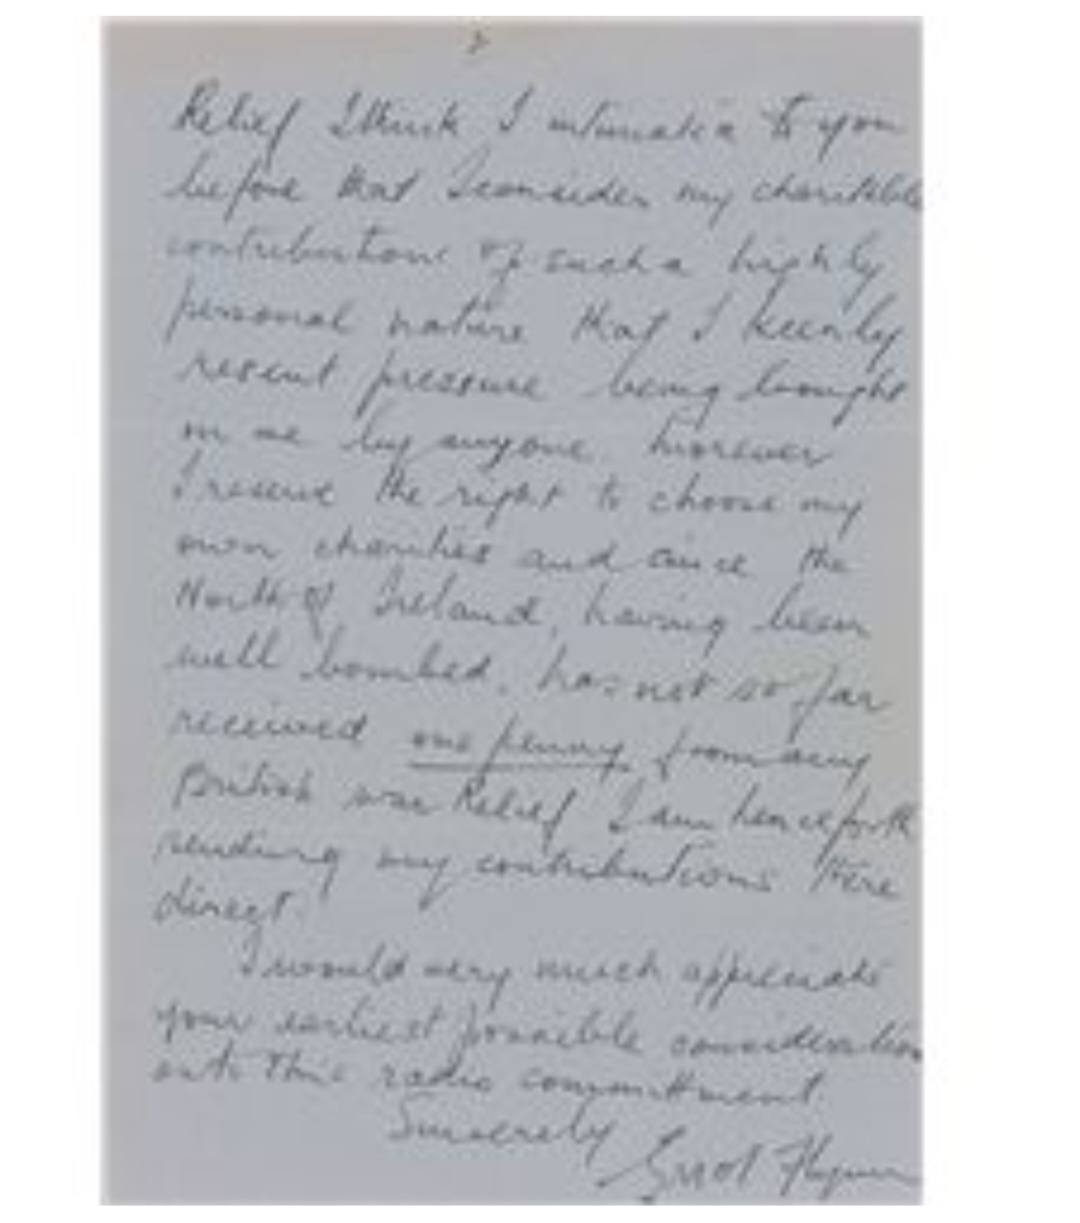 2
Relief I think I intimated to you
before that I consider my charitable
contributions of such a highly
personal nature that I keenly
resent pressure being brought
on me by anyone. Moreover
I reserve the right to choose my
own charities and since the
North of Ireland, having been
well bombed, has not so far
received one penny from any
British war Relief I am henceforth
sending my contributions there
direct.
I would very much appreciate
your earliest possible consideration
into this radio committment
Sincerely
Errol Flynn